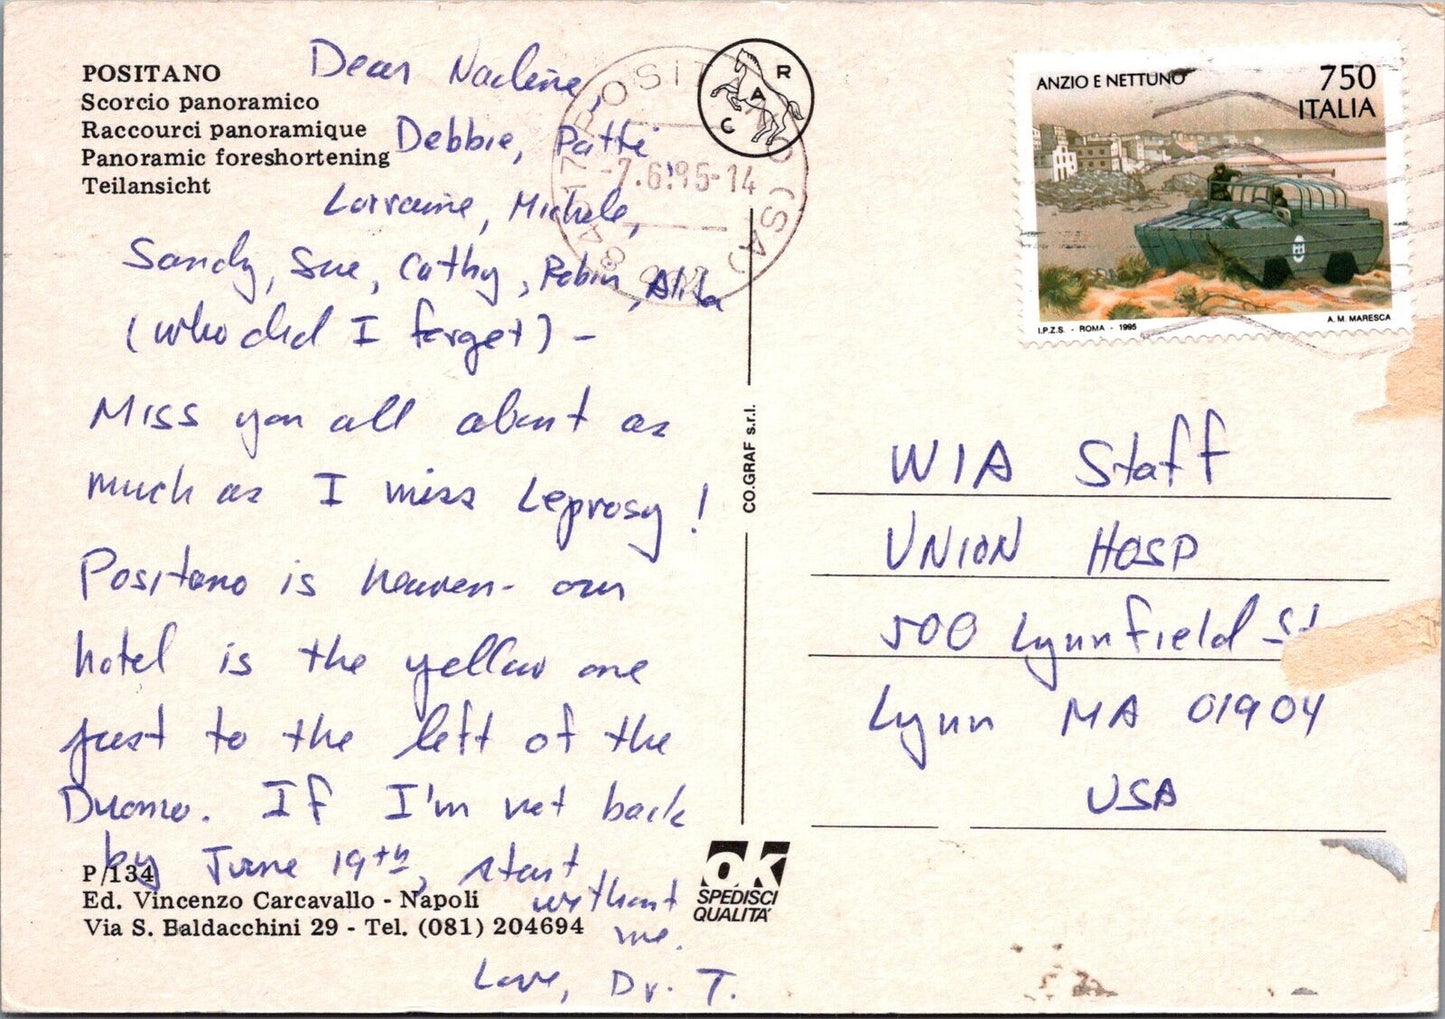 POSITANO
Scorcio panoramico
Raccourci panoramique
Panoramic foreshortening
Teilansicht
Dear Nadine,
Debbie, Patti
Lorraine, Michele,
Sandy, Sue, Cathy, Robin, Alita
(who did I forget) -
Miss you all about as
much as I miss Leprosy!
Positano is heaven - our
hotel is the yellow one
just to the left of the
Duomo. If I'm not back
by June 19th, start
without
me.
Love, Dr. T.
P/134
Ed. Vincenzo Carcavallo - Napoli
Via S. Baldacchini 29 - Tel. (081) 204694
CO.GRAF s.r.l.
OK
SPEDISCI
QUALITA'
R
A
C
-7.6.95-14
(SA)
ANZIO E NETTUNO
750
ITALIA
I.P.Z.S. - ROMA - 1995
A. M. MARESCA
WIA Staff
UNION HOSP
500 Lynnfield St
Lynn MA 01904
USA